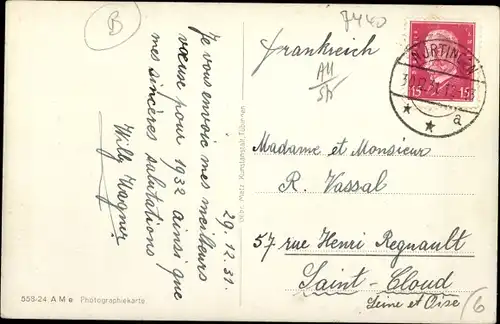 B
29.12.31.
Je vous envoie mes meilleurs
vœux pour 1932 ainsi que
mes sincères salutations
Willy Wagner
558-24 A M e Photographiekarte.
Gebr. Metz Kunstanstalt, Tübingen
7440
Frankreich
NÜRTINGEN
a
15 15
Madame et Monsieur
R. Vassal
57 rue Henri Regnault
Saint-Cloud
Seine et Oise
6